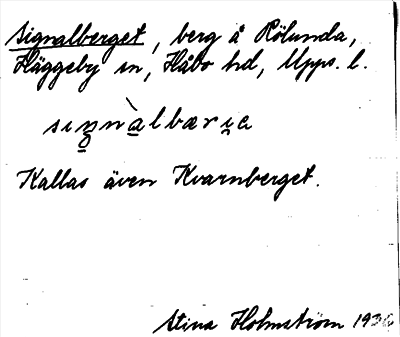 Signalberget, berg å Rölunda,
Häggeby sn, Håbo hd, Upps. l.
Kallas även Kvarnberget.
Stina Holmström